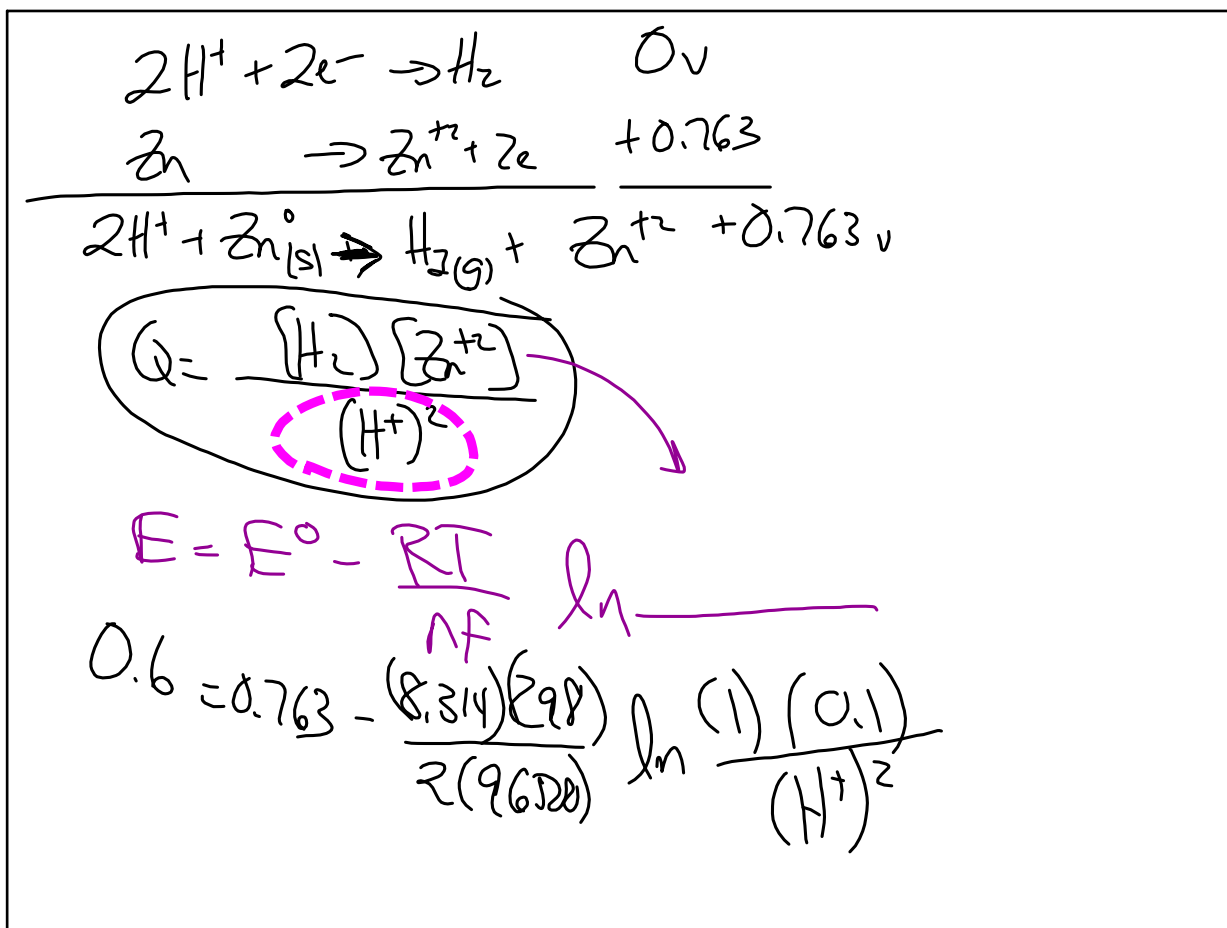 2H⁺ + 2e⁻ → H₂ 0v
Zn → Zn⁺² + 2e +0.763
2H⁺ + Zn°(s) → H₂(g) + Zn⁺² +0.763 v
Q = [H₂] [Zn⁺²] / (H⁺)²
E = E° - RT / nF ln ______
0.6 = 0.763 - (8.314)(298) / 2(96520) ln (1) (0.1) / (H⁺)²